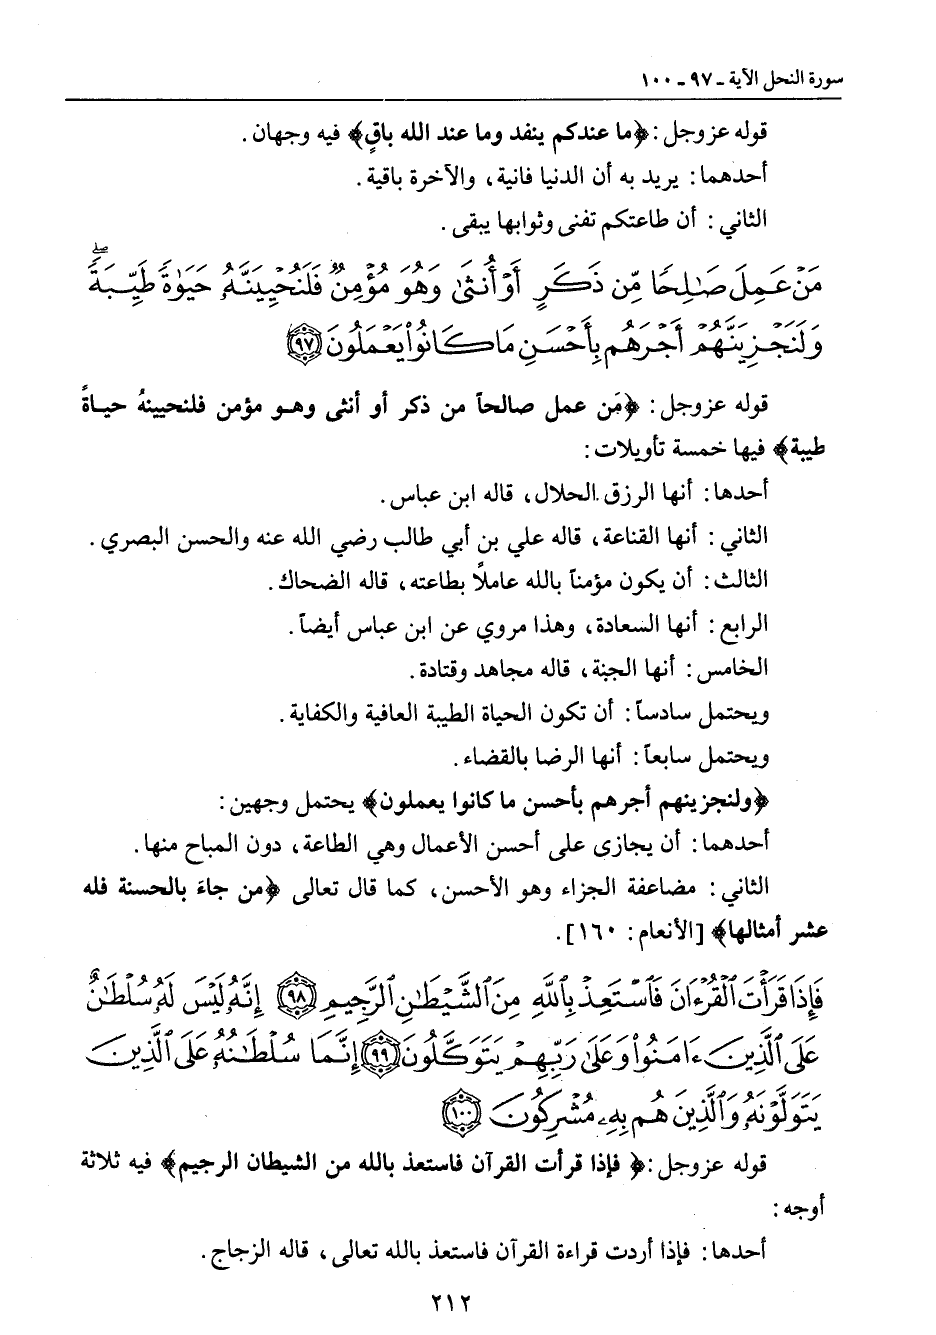 سورة النحل الآية ـ ٩٧ ـ ١٠٠
قوله عز وجل : ﴿ما عندكم ينفد وما عند الله باقٍ﴾ فيه وجهان .
أحدهما : يريد به أن الدنيا فانية ، والآخرة باقية .
الثاني : أن طاعتكم تفنى وثوابها يبقى .
مَنْ عَمِلَ صَٰلِحًا مِّن ذَكَرٍ أَوْ أُنثَىٰ وَهُوَ مُؤْمِنٌ فَلَنُحْيِيَنَّهُۥ حَيَوٰةً طَيِّبَةًۖ
وَلَنَجْزِيَنَّهُمْ أَجْرَهُم بِأَحْسَنِ مَا كَانُوا۟ يَعْمَلُونَ ٩٧
قوله عز وجل : ﴿مَن عمل صالحاً من ذكر أو أنثى وهو مؤمن فلنحيينهُ حياةً
طيبة﴾ فيها خمسة تأويلات :
أحدها : أنها الرزق الحلال ، قاله ابن عباس .
الثاني : أنها القناعة ، قاله علي بن أبي طالب رضي الله عنه والحسن البصري .
الثالث : أن يكون مؤمناً بالله عاملاً بطاعته ، قاله الضحاك .
الرابع : أنها السعادة ، وهذا مروي عن ابن عباس أيضاً .
الخامس : أنها الجنة ، قاله مجاهد وقتادة .
ويحتمل سادساً : أن تكون الحياة الطيبة العافية والكفاية .
ويحتمل سابعاً : أنها الرضا بالقضاء .
﴿ولنجزينهم أجرهم بأحسن ما كانوا يعملون﴾ يحتمل وجهين :
أحدهما : أن يجازى على أحسن الأعمال وهي الطاعة ، دون المباح منها .
الثاني : مضاعفة الجزاء وهو الأحسن ، كما قال تعالى ﴿من جاءَ بالحسنة فله
عشر أمثالها﴾ [الأنعام : ١٦٠] .
فَإِذَا قَرَأْتَ ٱلْقُرْءَانَ فَٱسْتَعِذْ بِٱللَّهِ مِنَ ٱلشَّيْطَٰنِ ٱلرَّجِيمِ ٩٨ إِنَّهُۥ لَيْسَ لَهُۥ سُلْطَٰنٌ
عَلَى ٱلَّذِينَ ءَامَنُوا۟ وَعَلَىٰ رَبِّهِمْ يَتَوَكَّلُونَ ٩٩ إِنَّمَا سُلْطَٰنُهُۥ عَلَى ٱلَّذِينَ
يَتَوَلَّوْنَهُۥ وَٱلَّذِينَ هُم بِهِۦ مُشْرِكُونَ ١٠٠
قوله عز وجل : ﴿ فإذا قرأت القرآن فاستعذ بالله من الشيطان الرجيم﴾ فيه ثلاثة
أوجه :
أحدها : فإذا أردت قراءة القرآن فاستعذ بالله تعالى ، قاله الزجاج .
٢١٢